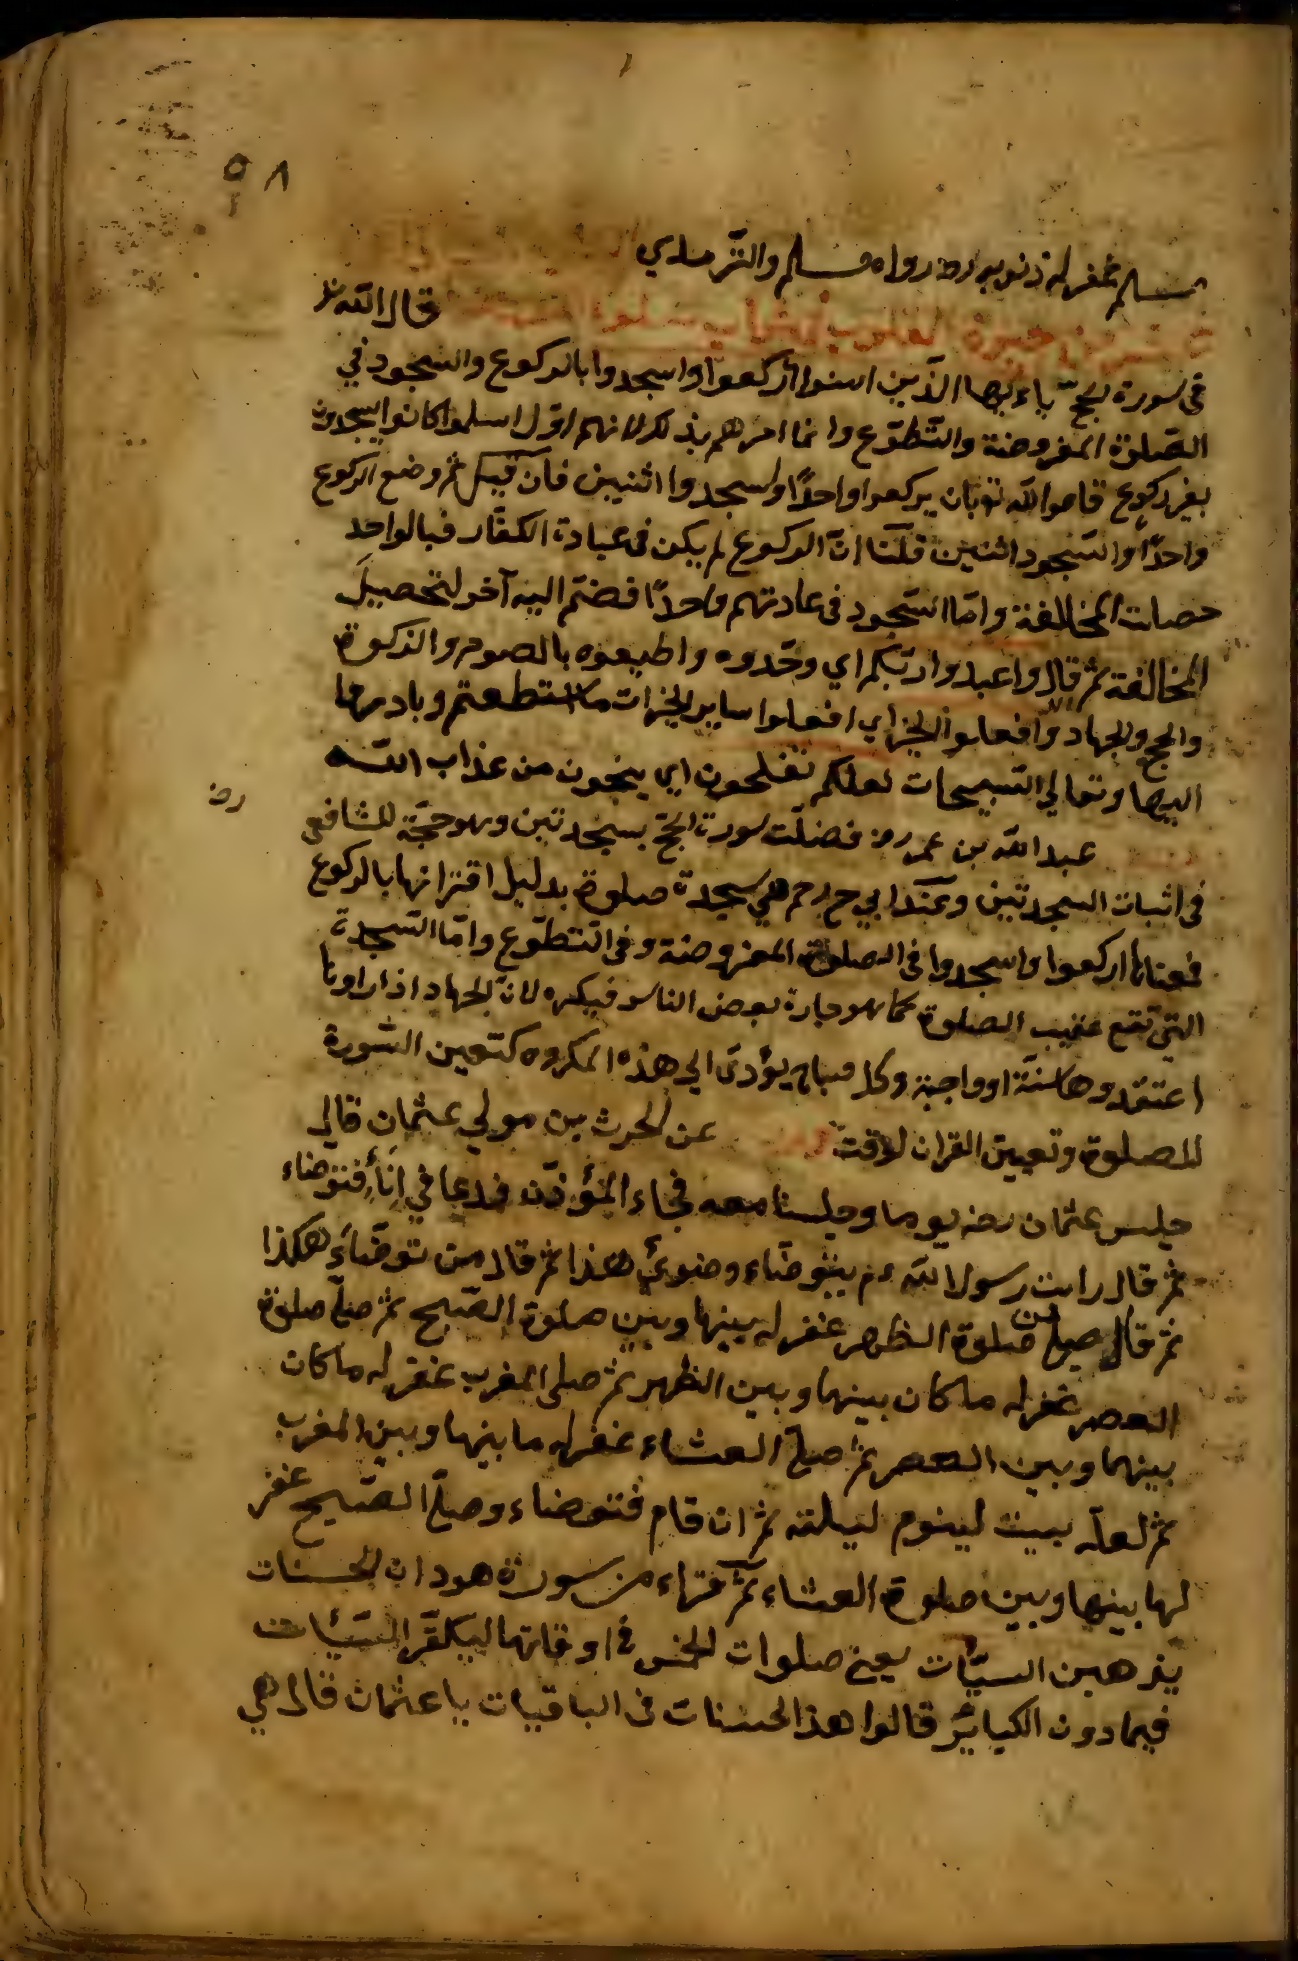 ٥٨
مسلم غفر له ذنوبه رواه مسلم والترمذي
قال الله تعا
في سورة الحج ياءيها الذين امنوا اركعوا واسجدوا بالركوع والسجود في
الصلوة المفروضة والتطوع وانما امرهم بذلك لانهم اول اسلموا كانوا يسجدون
بغير ركوع فامر الله تع بان يركعوا واحدًا ويسجدوا اثنين فان قيل ثم وضع الركوع
واحدًا والسجود اثنين قلنا ان الركوع لم يكن في عبادة الكفار فبالواحد
حصلت المخالفة واما السجود في عادتهم واحدًا فضم اليه آخر لتحصيل
المخالفة ثم قال واعبدوا ربكم اي وحدوه واطيعوه بالصوم والزكوة
والحج والجهاد وافعلوا الخير اي افعلوا ساير الخيرات ما استطعتم وبادروا
اليها وتعالي التسبيحات لعلكم تفلحون اي ينجون من عذاب الله
عبد الله بن عمر رض فضلت سورة الحج بسجدتين وهو حجة للشافعي
رض
في اثبات السجدتين وعند ابي ح رح هي سجدة صلوة بدليل اقترانها بالركوع
فمعناها اركعوا واسجدوا في الصلوة المفروضة وفي التطوع واما السجدة
التي تقع عقيب الصلوة كما هو عادة بعض الناس فيكره لان الجهاد اذا راونا
اعتقدوها سنة او واجبة وكل مباح يؤدي الي هذه المكروه كتعيين السورة
للصلوة وتعيين القران لوقت عن الحرث بن مولي عثمان قال
جلس عثمان رضه يوما وجلسنا معه فجاء المؤذن فدعا في اناء فتوضاء
ثم قال رايت رسول الله عم يتوضاء وضوئي هذا ثم قال من توضاء هكذا
ثم قال من صلي صلوة الظهر غفر له بينها وبين صلوة الصبح ثم صلي صلوة
العصر غفر له ما كان بينها وبين الظهر ثم صلى المغرب غفر له ما كان
بينهما وبين العصر ثم صلي العشاء غفر له ما بينها وبين المغرب
ثم لعله يبيت لينوم ليلته ثم ان قام فتوضاء وصلي الصبح غفر
لها بينها وبين صلوة العشاء ثم قراء من سورة هود ان الحسنات
يذهبن السيات يعني صلوات الخمس في اوقاتها ليكفر السيئات
فيما دون الكبائر قالوا هذا الحسنات فى الباقيات يا عثمان قال هي